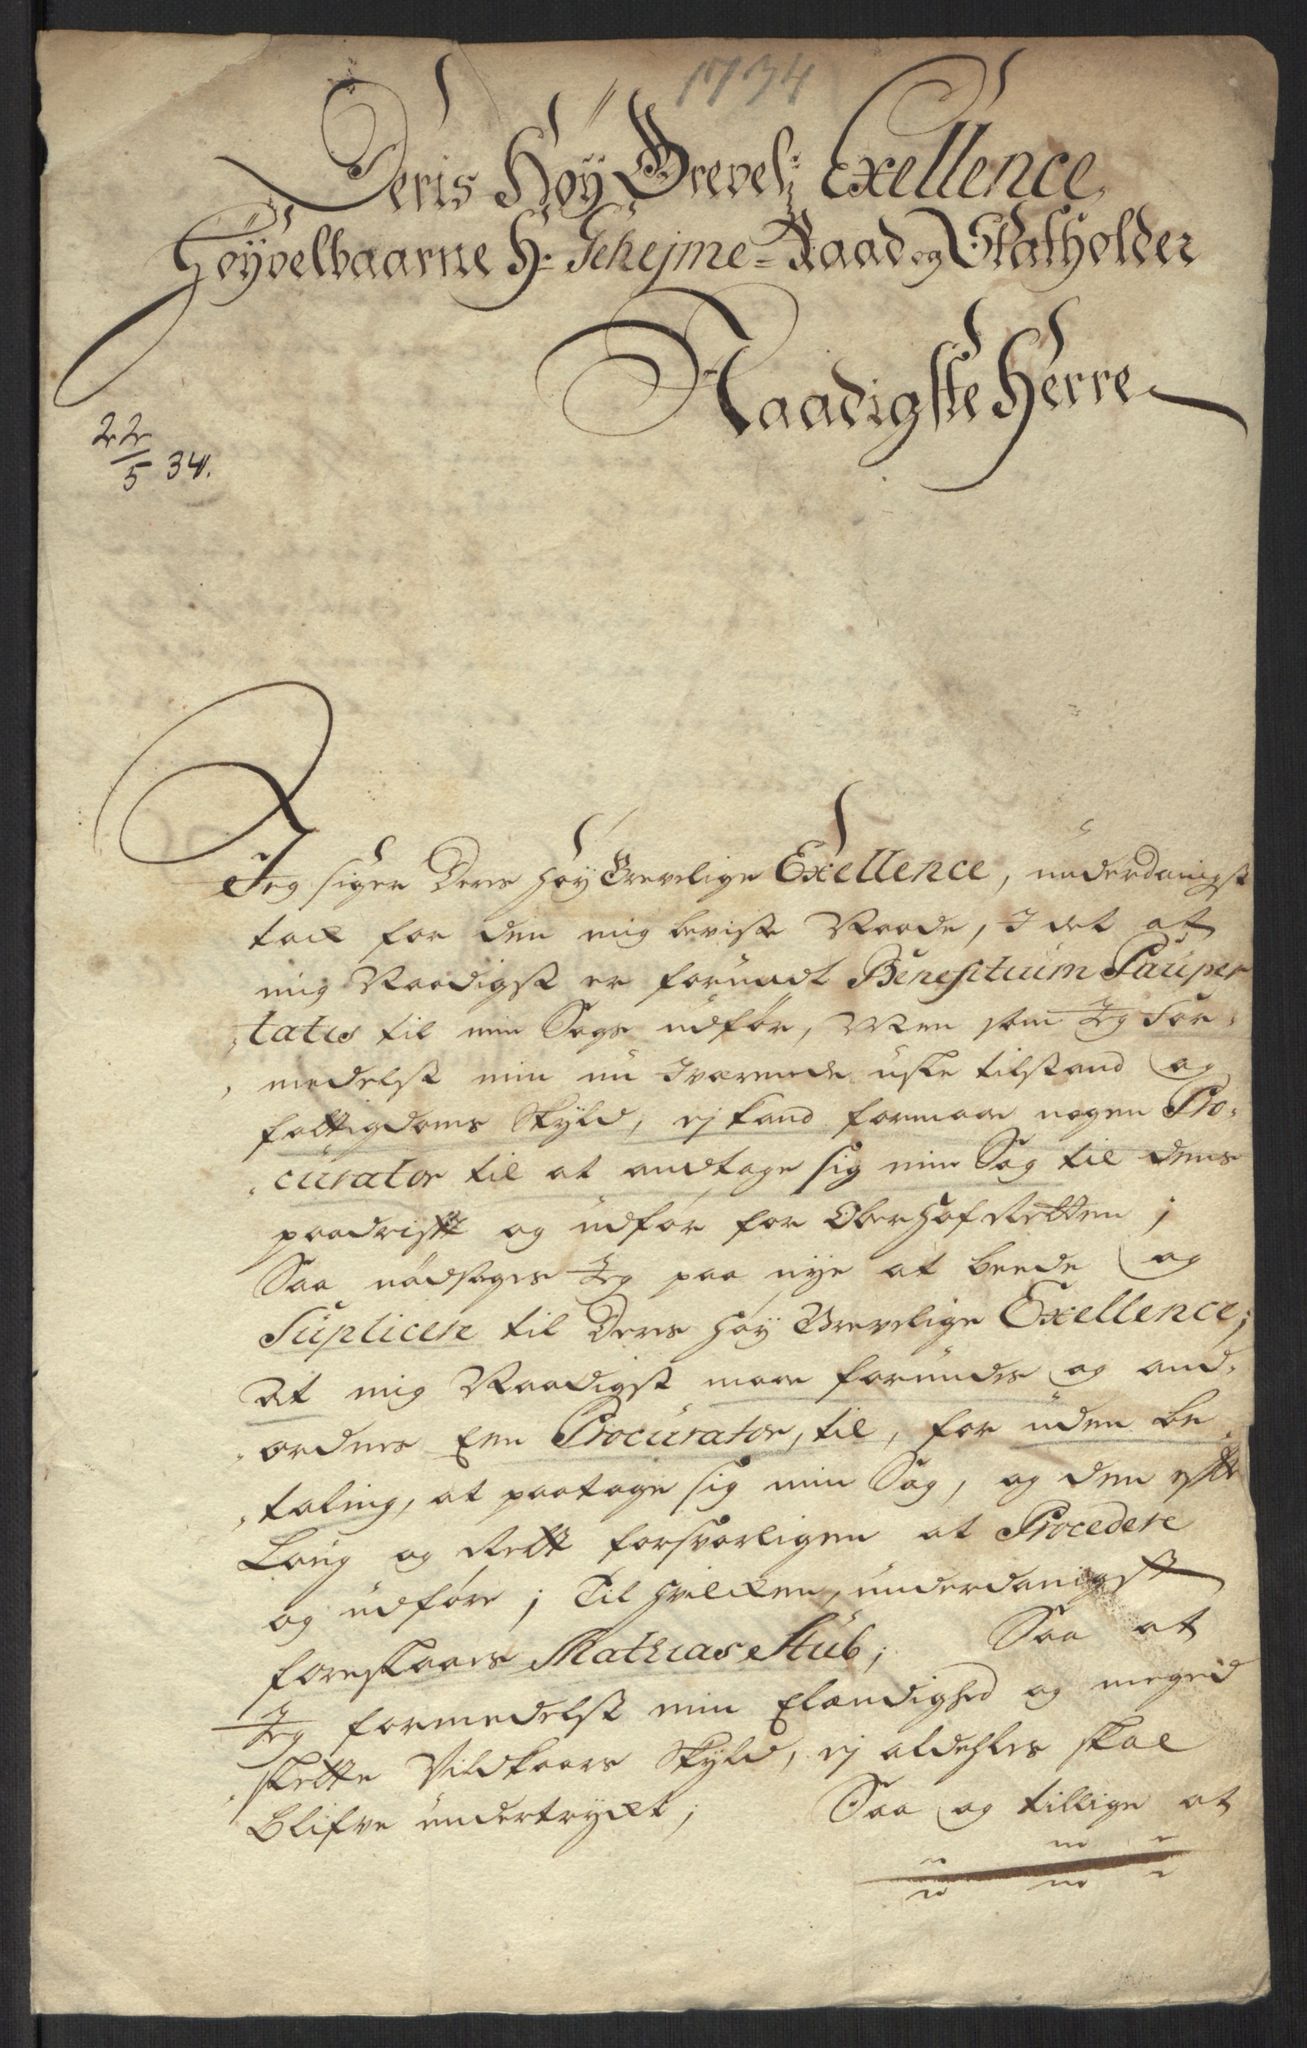 1734
Deris Høy Grevel: Exellence
Høyvelbaarne H: Gehejme-Raad og Statholder
Naadigste Herre
22/5 34.
Jeg siger Deris Høy Grevelige Exellence, underdanigst
tack for den mig beviste Naade, I det at
mig Naadigst er forundt Benefitium Pauper
tatis til min Sags udfør, Men som Jeg For-
medelst min nu Iværende usle tilstand og
fattigdoms skyld, ej kand formaae nogen Pro-
curator til at andtage sig min Sag til dens
paadrift og udfør for OberHofRetten;
Saa nødsages Jeg paa nye at beede og
Suplicere til Deris Høy Grevelige Exellence;
At mig Naadigst maae forundes og and-
ordnes Een Procurator, til, for uden be
taling, at paatage sig min Sag, og den efter
Loug og Rett forsvarligen at Procedere
og udføre; Til hvilcken, underdanigst
foreslaaes Mathias Stub; Saa at
Jeg formedelst min Elændighed og meged
slette Vildkaars skyld, ej aldeeles skal
blifve undertryckt; Saa og tillige at